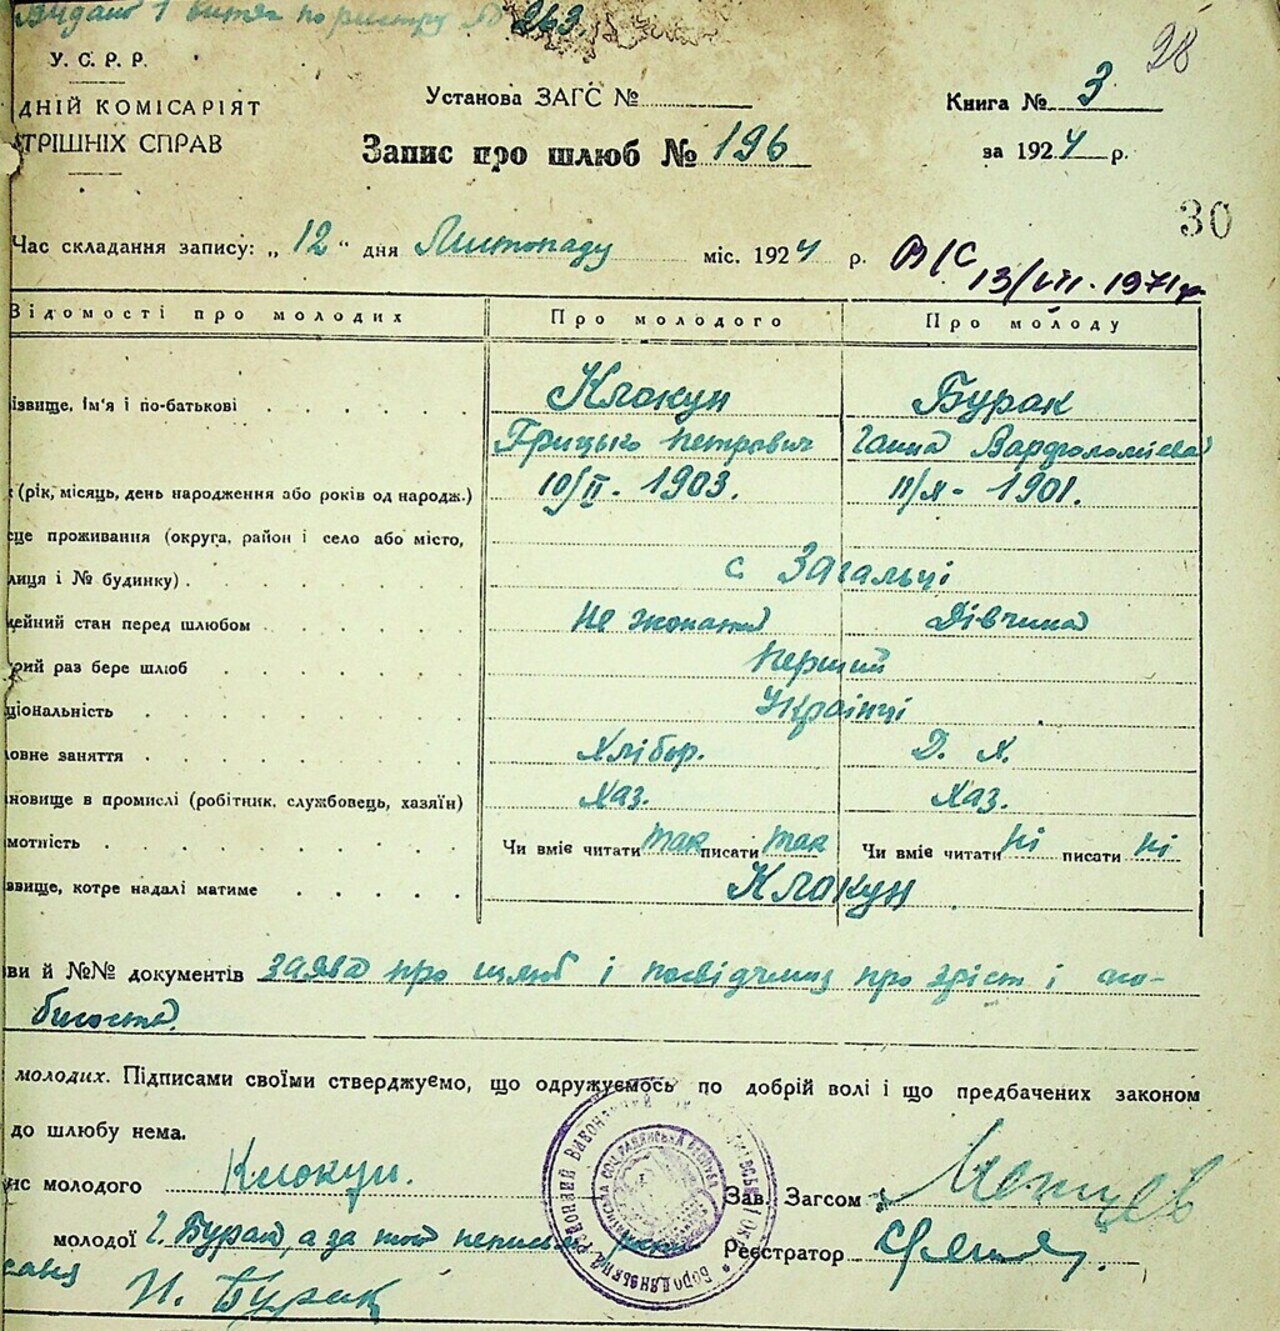 Видано 1 витяг по реєстру № 263.
28
У. С. Р. Р.
ДНІЙ КОМІСАРІЯТ
ТРІШНІХ СПРАВ
Установа ЗАГС №
Книга № 3
Запис про шлюб № 196
за 1924 р.
30
Час складання запису: „12“ дня Листопаду міс. 1924 р.
13/VII. 1971р
Відомості про молодих Про молодого Про молоду
ізвище, ім'я і по-батькові Клокун Бурак
Грицько Петрович Ганна Варфоломієва
(рік, місяць, день народження або років од народж.) 10/II. 1903. 11/X - 1901.
сце проживання (округа, район і село або місто,
лиця і № будинку) с Загальці
ейний стан перед шлюбом Не жонатий Дівчина
рий раз бере шлюб Перший
ціональність Українці
овне заняття Хлібор. Д. Х.
новище в промислі (робітник, службовець, хазяїн) Хаз. Хаз.
мотність Чи вміє читати так писати так Чи вміє читати ні писати ні
звище, котре надалі матиме Клокун
ви й №№ документів заява про шлюб і посвідчина про зріст і
молодих. Підписами своїми стверджуємо, що одружуємось по добрій волі і що предбачених законом
до шлюбу нема.
ис молодого Клокун. Зав. Загсом
молодої Г. Бурак, а за Реєстратор
Н. Бурак